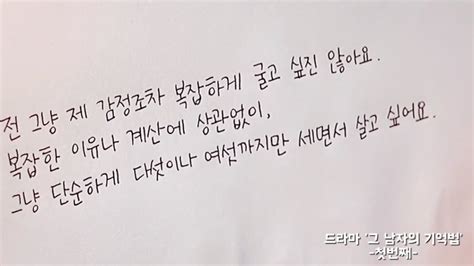 전 그냥 제 감정조차 복잡하게 굴고 싶진 않아요.
복잡한 이유나 계산에 상관없이,
그냥 단순하게 다섯이나 여섯까지만 세면서 살고 싶어요.
드라마 '그 남자의 기억법'
-첫번째-